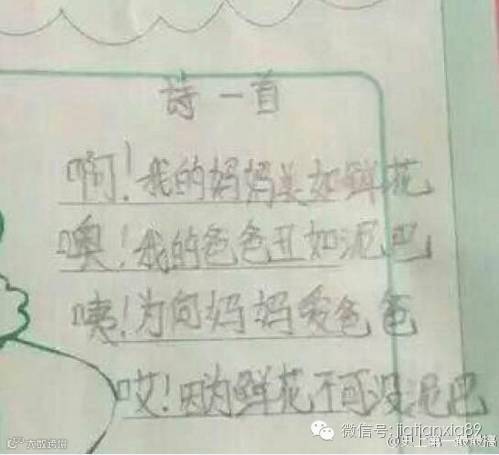 诗一首
啊!我的妈妈美如鲜花
噢!我的爸爸丑如泥巴
咦!为何妈妈爱爸爸
哎!因为鲜花不可没泥巴
大数跨境
微信号: jiatianxia89
@史上第一最最搞